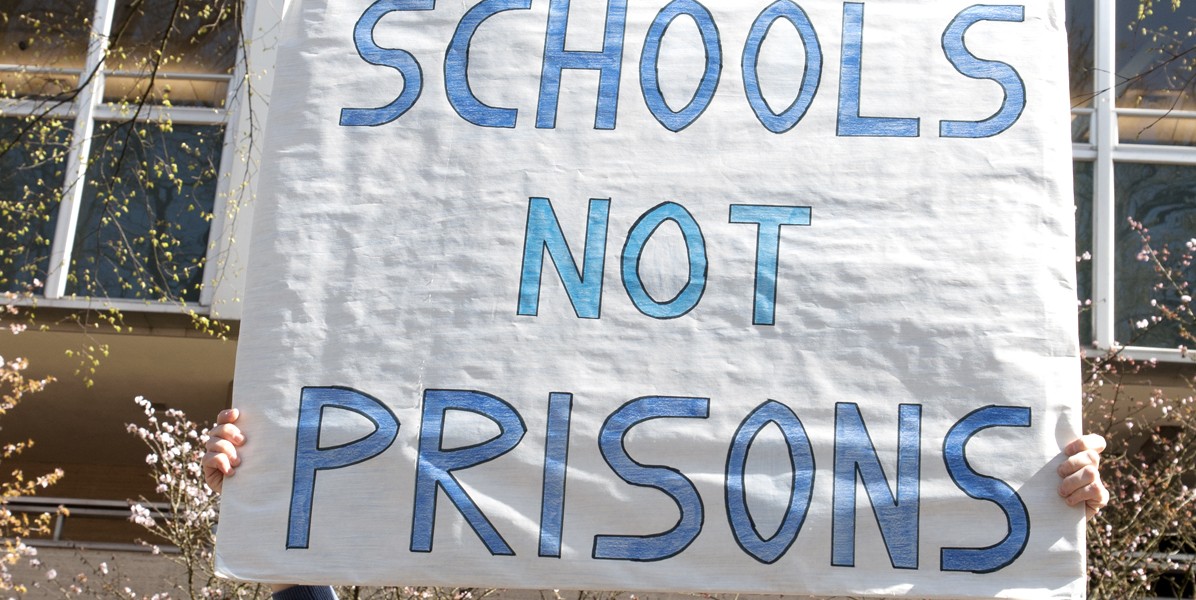 SCHOOLS
NOT
PRISONS